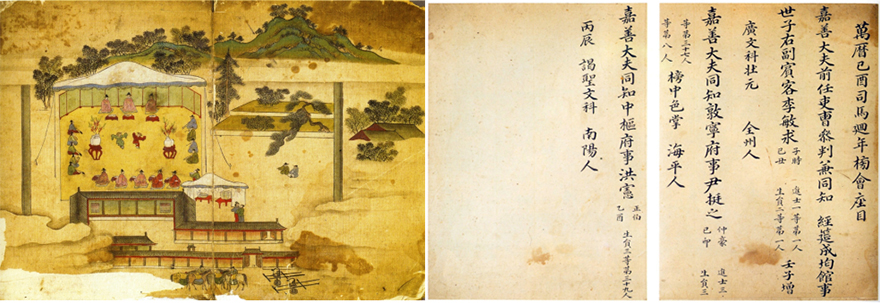 萬曆己酉司馬廻年榜會座目
嘉善大夫前任吏曹參判兼同知 經筵成均館事
世子右副賓客李敏求 子時 己丑 進士一等第一人 生員二等第一人 壬子增
廣文科壯元 全州人
嘉善大夫同知敦寧府事尹挺之 仲豪 己卯 進士三 生員三
等第八人 榜中色掌 海平人
嘉善大夫同知中樞府事洪憲 正伯 乙酉 生員三等第三十九人
丙辰 謁聖文科 南陽人